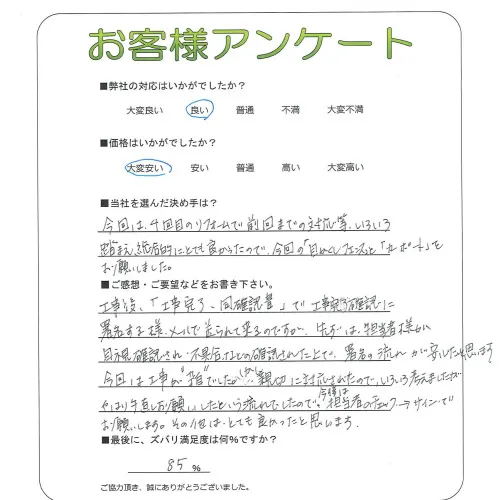 お客様アンケート
■弊社の対応はいかがでしたか？
大変良い 良い 普通 不満 大変不満
■価格はいかがでしたか？
大変安い 安い 普通 高い 大変高い
■当社を選んだ決め手は？
今回は、4回目のリフォームで前回までの対応等、いろいろ
踏まえ総合的にとても良かったので、今回の「目かくしフェンスと「カーポート」を
お願いしました。
■ご感想・ご要望などをお書き下さい。
工事後、「工事完了、同確認書」で工事完了確認に
署名する様、メールで送られて来るのですが、先ずは、担当者様が
目視確認され、不具合なしの確認されたことで、署名の流れが宜しいと思います
今回は工事が"雑"でしたが 親切に対応されたので、いろいろ考えましたが
やはり手直しお願いしたという流れでしたので、今後は担当者のチェック→サインで
お願いします。その他は、とても良かったと思います。
■最後に、ズバリ満足度は何%ですか？
85 %
ご協力頂き、誠にありがとうございました。